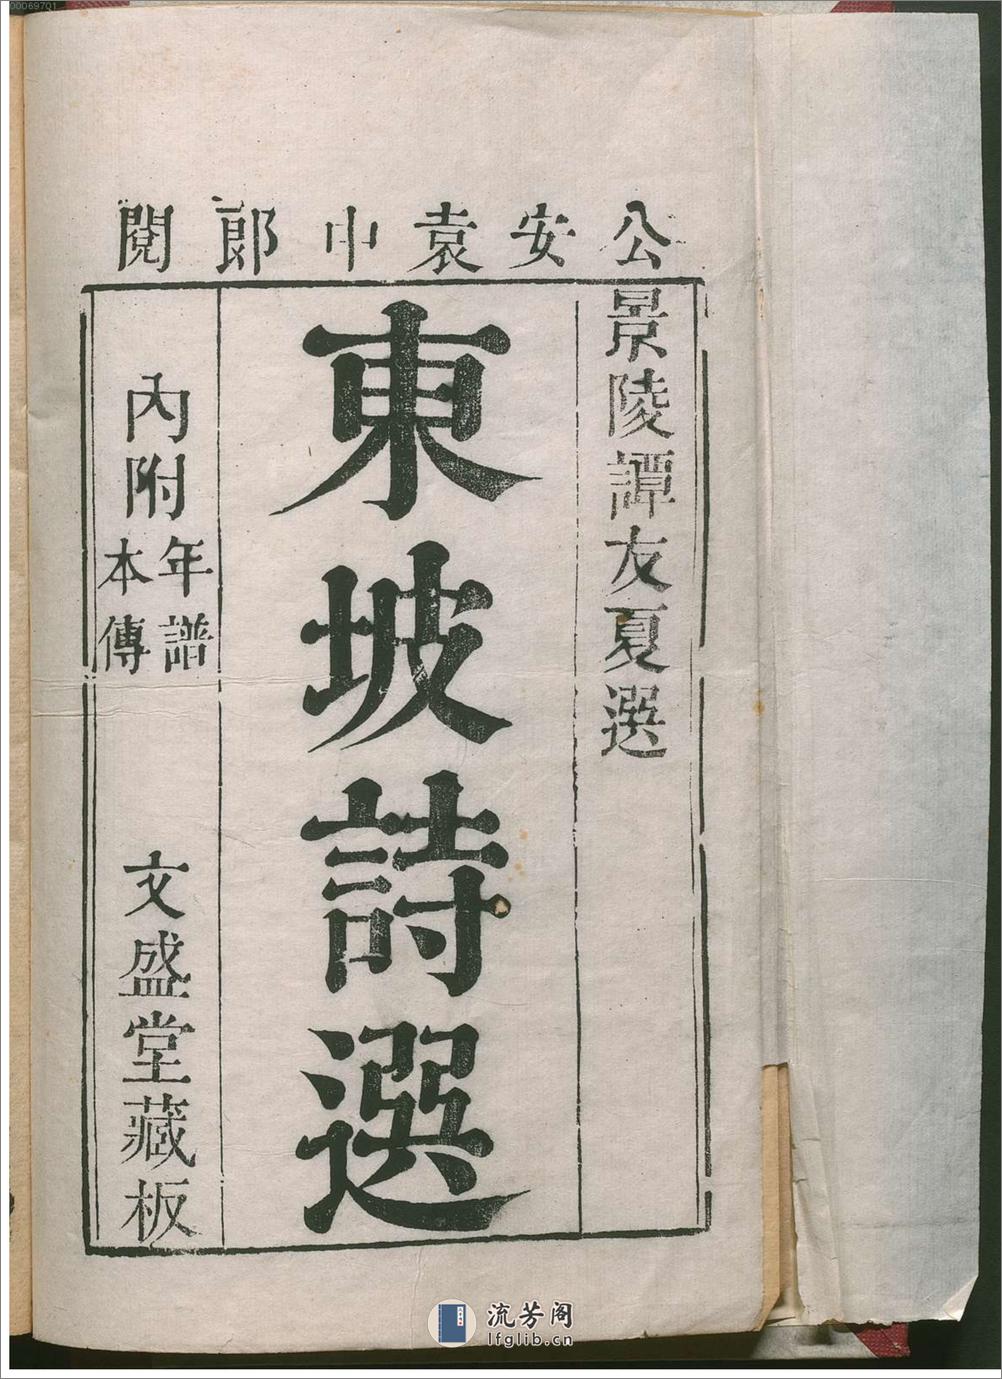 00069701
公安袁中郎閱
景陵譚友夏選
東坡詩選
內附年譜本傳
文盛堂藏板
流芳阁
lfglib.cn